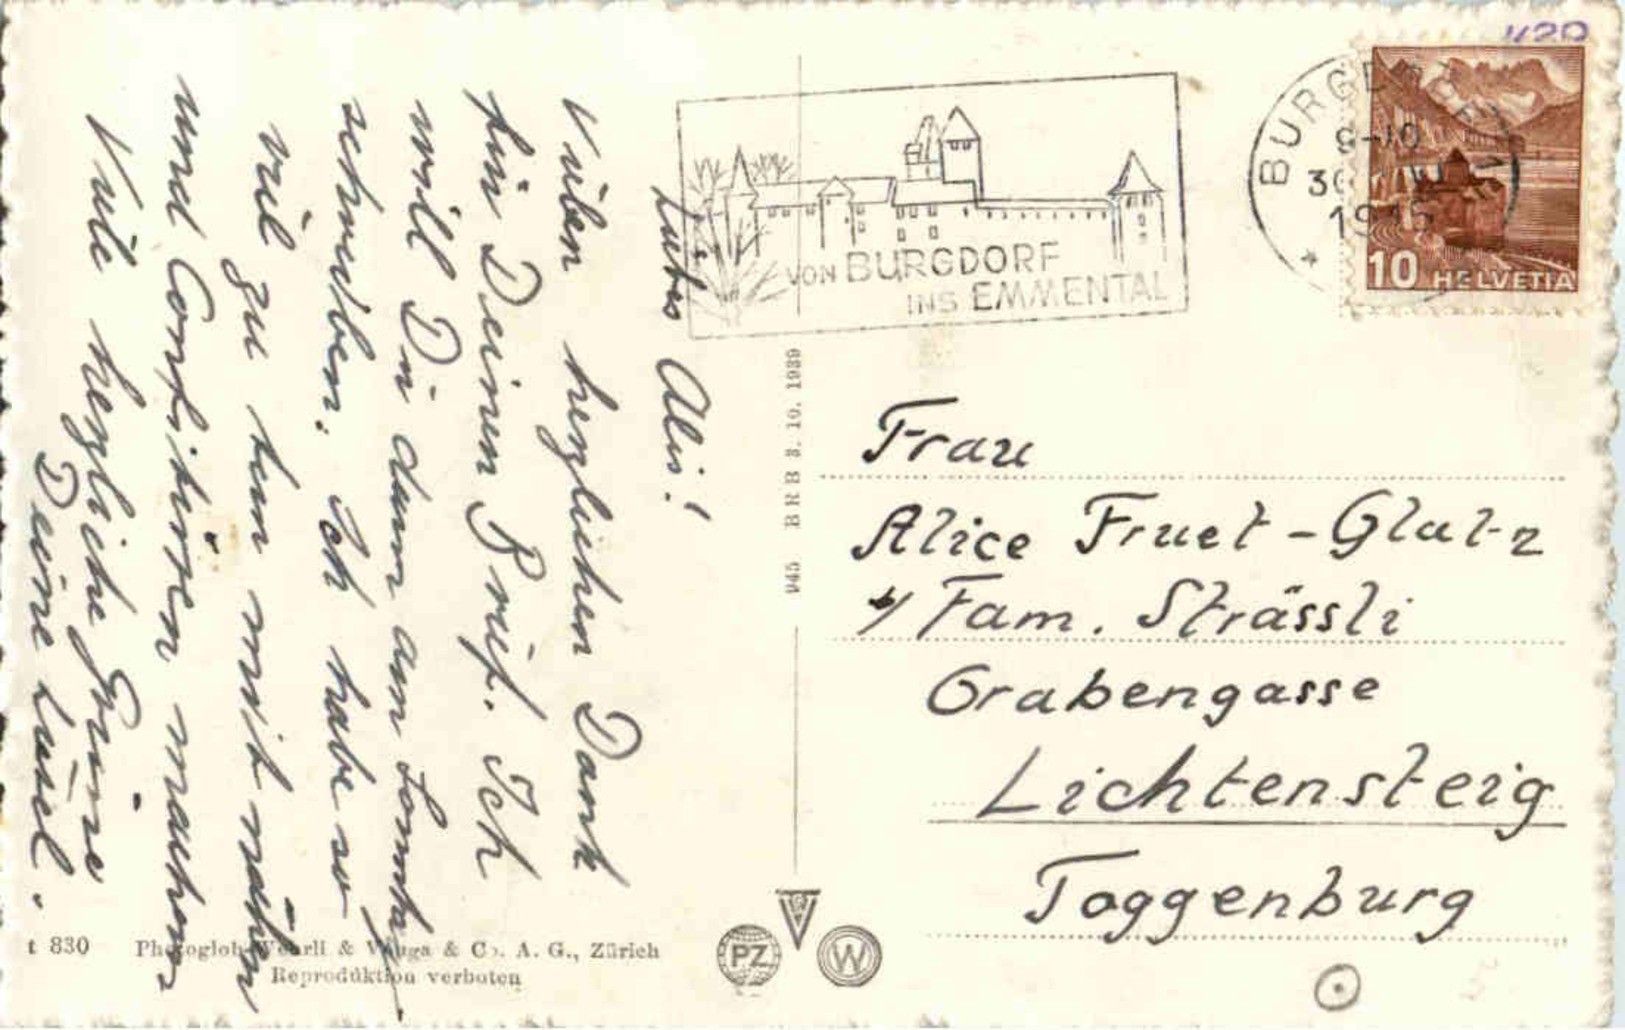 Liebes Alis!
Vielen herzlichen Dank
für Deinen Brief. Ich
will Dir dann am Sonntag
schreiben. Ich habe so
viel zu tun mit nähen
und Confitüren machen.
Viele herzliche Grüsse
Deine Liesel.
VON BURGDORF
INS EMMENTAL
BURGDORF 1
9-10
30
10 HELVETIA
945 BRB 3. 10. 1939
Frau
Alice Fruet-Glatz
b/ Fam. Strässli
Grabengasse
Lichtensteig
Toggenburg
t 830 Photoglob-Wehrli & Vouga & Co. A. G., Zürich
Reproduktion verboten
PZ
V
W